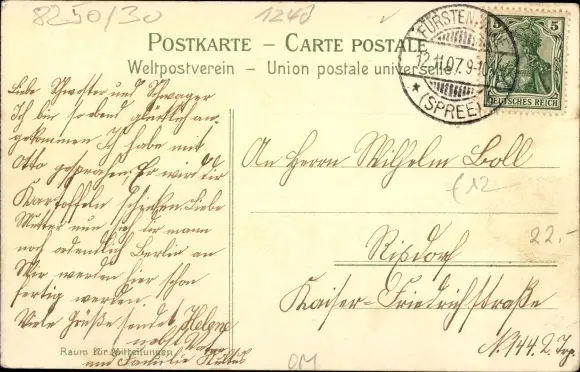 8250/30
1240
POSTKARTE – CARTE POSTALE
Weltpostverein – Union postale universelle
FÜRSTENWALDE
12.11.07. 9-10
(SPREE)
5 5
DEUTSCHES REICH
Liebe Schwester und Schwager
Ich bin soebend glücklich an-
gekommen Ich habe mit
Otto gesprochen, Er wird dir
Kartoffeln schicken. Liebe
Mutter nun sei dir mann
noch ordentlich Berlin an
Wir werden hier schon
fertig werden.
Viele Grüße sendet Helene
nebst Vater
und Familie
Raum für Mitteilungen
An Herrn Wilhelm Boll
Rixdorf
Kaiser-Friedrichstraße
N. 244. 2. Trp.
£12
22.-